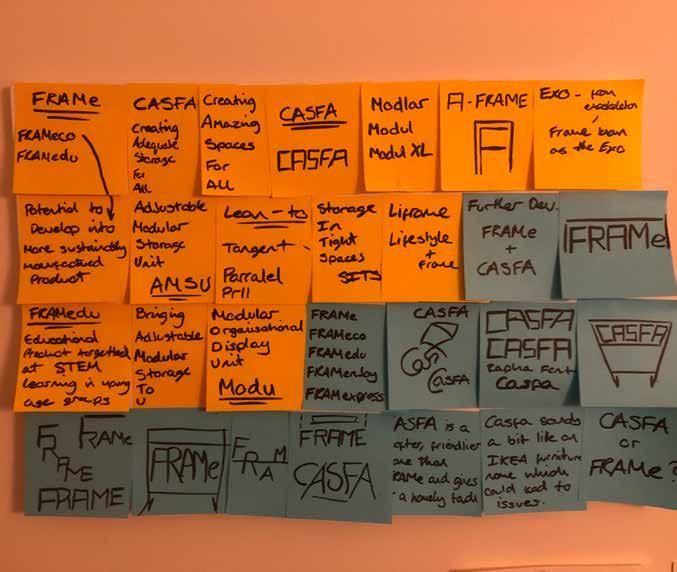 FRAMe
FRAMeco
FRAMedu
CASFA
Creating
Adequate
Storage
For
All
Creating
Amazing
Spaces
For
All
CASFA
CASFA
Modlar
Modul
Modul XL
A-FRAME
A
Exo - from
exoskeleton
Frame
as the Exo
Potential to
Develop into
More sustainably
manufactured
Product
Adjustable
Modular
Storage
Unit
AMSU
Lean-to
Tangent
Parralel
Prll
Storage
In
Tight
Spaces
SITS
Liframe
Lifestyle
+
frame
Further Dev.
FRAMe
+
CASFA
FRAMe
FRAMedu
Educational
Product targetted
at STEM
learning in young
age groups
Bringing
Adjustable
Modular
Storage
To
U
Modular
Organisational
Display
Unit
Modu
FRAMe
FRAMeco
FRAMedu
FRAMenjoy
FRAMexpress
CASFA
CaSf
CASFA
CASFA
CASFA
Rapha Font
Casfa
CASFA
FRAME
FRAMe
FRAME
FRAMe
FRAM
FRAME
CASFA
ASFA is a
friendlier
than
RAMe and gives
a homely
Casfa sounds
a bit like an
IKEA furniture
name which
could lead to
issues.
CASFA
or
FRAMe?